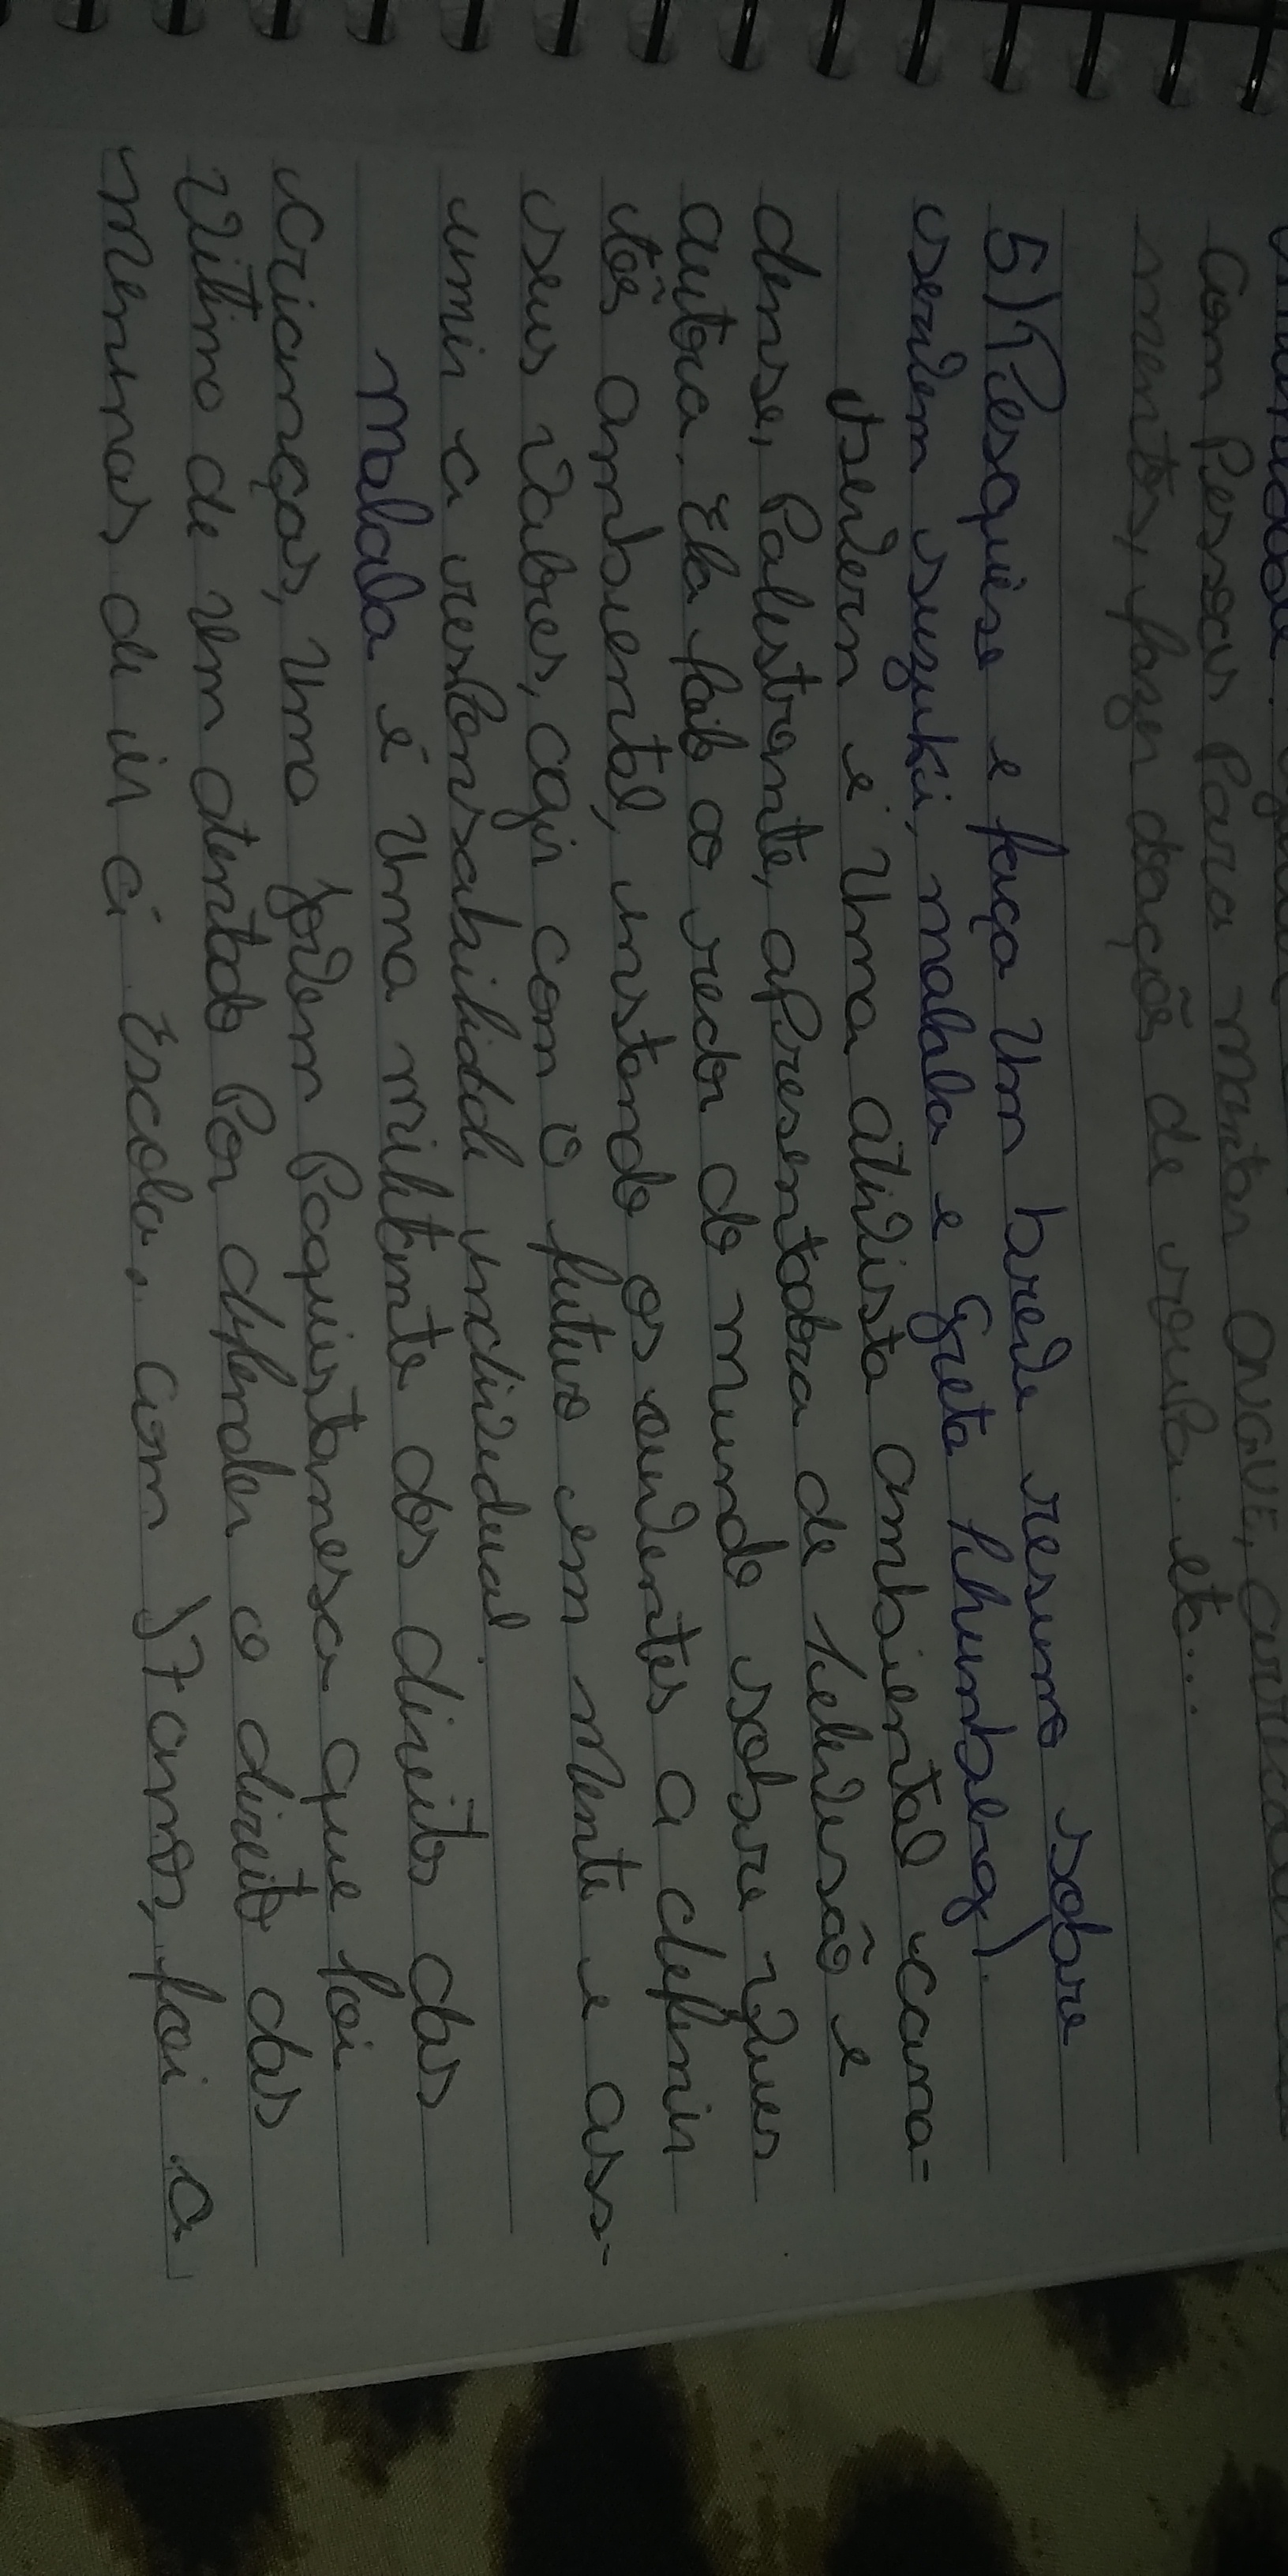 com pessoas para mantar ONGUE,
mentos, fazer doações de roupa. etc...
5) (Pesquise e faça um breve resumo sobre
severn suzuki, malala e greta thunberg).
severn é uma ativista ambiental cana-
dense, palestrante, apresentadora de televisão e
autora. Ela fala ao redor do mundo sobre ques
tões ambiental, instando os ouvintes a definir
seus valores, agir com o futuro em mente e ass-
umir a responsabilidade individual.
malala é uma militante dos direitos das
crianças, uma jovem paquistanesa que foi
vítima de um atentado por defender o direito das
meninas de ir á escola. com 17 anos, foi a